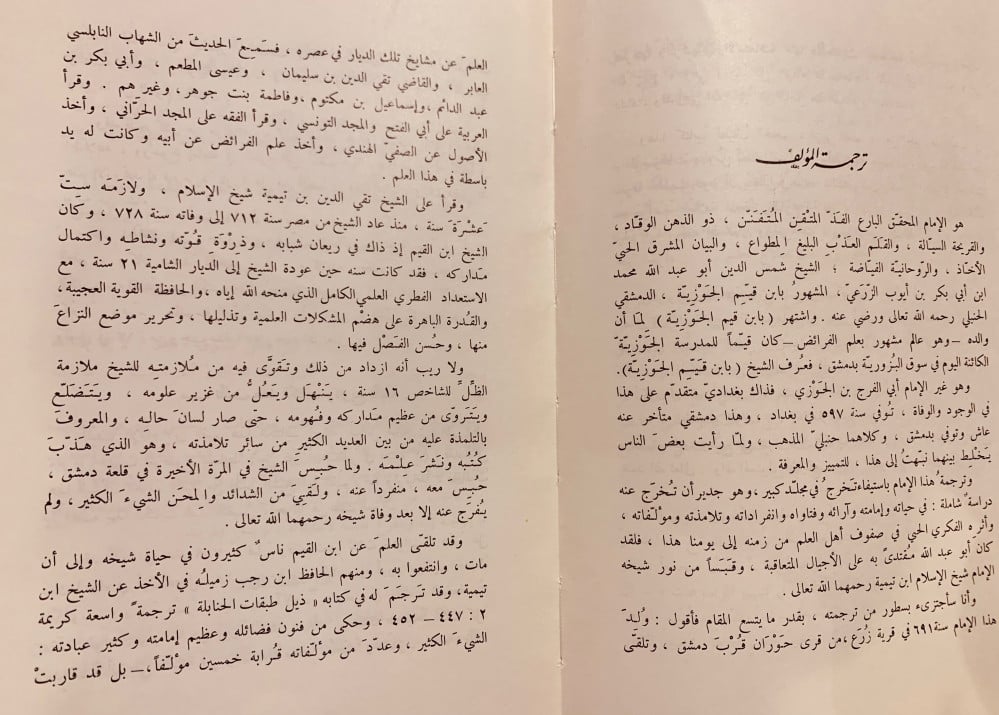 ترجمة المؤلف
هو الإمام المحقق البارع الفَذّ المتْقِن المُتَفَنّن ، ذو الذهن الوقّاد ،
والقريحة السيّالة ، والقلَم العَذْبِ البليغ المِطواع ، والبيان المشرق الحيّ
الأخّاذ ، والرّوحانيّة الفيّاضة ؛ الشيخ شمس الدين أبو عبد الله محمد
ابن أبي بكر بن أيوب الزُّرَعيّ ، المشهورُ بابن قيّم الجَوْزِيّة ، الدمشقي
الحنبلي رحمه الله تعالى ورضي عنه . واشتهر ( بابن قيم الجَوْزِيّة ) لِمَا أن
والده – وهو عالم مشهور بعلم الفرائض – كان قَيّماً للمدرسة الجَوْزِيّة
الكائنة اليوم في سوق البُزوريّة بدمشق ، فعُرف الشيخ ( بابن قَيّم الجَوْزِيّة).
وهو غير الإمام أبي الفرج بن الجَوْزي ، فذاك بغداديّ متقدّم على هذا
في الوجود والوفاة ، تُوفي سنة ٥٩٧ في بغداد ، وهذا دمشقي متأخر عنه
عاش وتوفي بدمشق ، وكلاهما حنبليّ المذهب ، ولمّا رأيت بعضَ الناس
يَخْلِط بينهما نبّهتُ إلى هذا ، للتمييز والمعرفة .
وترجمةُ هذا الإمام باستيفاء تخرج في مجلّد كبير ، وهو جدير أن تُخرَج عنه
دراسةٌ شاملة : في حياته وإمامته وآرائه وفتاواه وانفراداته وتلامذته ومؤلّفاته ،
وأثرِه الفكري الحي في صفوف أهل العلم من زمنه إلى يومنا هذا ، فلقد
كان أبو عبد الله مُقتدىً به على الأجيال المتعاقبة ، وقَبَساً من نور شيخه
الإمام شيخ الإسلام ابن تيمية رحمهما الله تعالى .
وأنا سأجتزىء بسطور من ترجمته ، بقدر ما يتسع المقام فأقول : وُلِدَ
هذا الإمام سنة ٦٩١ في قرية زُرَع، من قرى حَوْرَان قُرْبَ دمشق ، وتلقّى
العلمَ عن مشايخ تلك الديار في عصره ، فسَمِعَ الحديثَ من الشهاب النابلسي
العابر ، والقاضي تقي الدين بن سليمان ، وعيسى المطعم ، وأبي بكر بن
عبد الدائم ، وإسماعيل بن مكتوم ، وفاطمة بنت جوهر ، وغيرهم . وقرأ
العربية على أبي الفتح والمجد التونسي ، وقرأ الفقه على المجد الحرّاني ، وأخذ
الأصول عن الصفيّ الهندي ، وأخذ علم الفرائض عن أبيه وكانت له يد
باسطة في هذا العلم .
وقرأ على الشيخ تقي الدين بن تيمية شيخ الإسلام ، ولازَمَه ستّ
عَشْرَةَ سنة ، منذ عاد الشيخ من مصر سنة ٧١٢ إلى وفاته سنة ٧٢٨ ، وكان
الشيخ ابن القيم إذ ذاك في ريعان شبابه ، وذِرْوَة قُوّته ونشاطِه واكتمال
مَداركه ، فقد كانت سنه حين عودة الشيخ إلى الديار الشامية ٢١ سنة ، مع
الاستعداد الفطري العلمي الكامل الذي منحه الله إياه ، والحافظة القوية العجيبة ،
والقُدرة الباهرة على هضْم المشكلات العلمية وتذليلها ، وتحرير موضع النزاع
منها ، وحُسن الفَصْل فيها .
ولا ريب أنه ازداد من ذلك وتقَوَّى فيه من مُلازمتِه للشيخ ملازمة
الظِّلِّ للشاخص ١٦ سنة ، يَنْهَل ويَعُلُّ من غزير علومه ، ويَتَضلّع
ويَتَروّى من عظيم مَداركه وفُهومه ، حتى صار لسانَ حالِه ، والمعروفَ
بالتلمذة عليه من بين العديد الكثير من سائر تلامذته ، وهو الذي هَذّبَ
كُتُبه ونَشَر علْمَه . ولما حُبِسَ الشيخ في المرّة الأخيرة في قلعة دمشق ،
حُبِسَ معه ، منفرداً عنه ، ولَقِيَ من الشدائد والمِحَن الشيءَ الكثير ، ولم
يُفرَج عنه إلا بعد وفاة شيخه رحمهما الله تعالى .
وقد تلقّى العلمَ عن ابن القيم ناسٌ كثيرون في حياة شيخه وإلى أن
مات ، وانتفعوا به ، ومنهم الحافظ ابن رجب زميلُه في الأخذ عن الشيخ ابن
تيمية، وقد ترجَمَ له في كتابه « ذيل طبقات الحنابلة » ترجمةً واسعة كريمة
٢ : ٤٤٧ – ٤٥٢ ، وحكى من فنون فضائله وعظيم إمامته وكثير عبادته :
الشيءَ الكثير ، وعدّدَ من مؤلّفاته قُرابة خمسين مؤلّفاً ، – بل قد قاربتْ